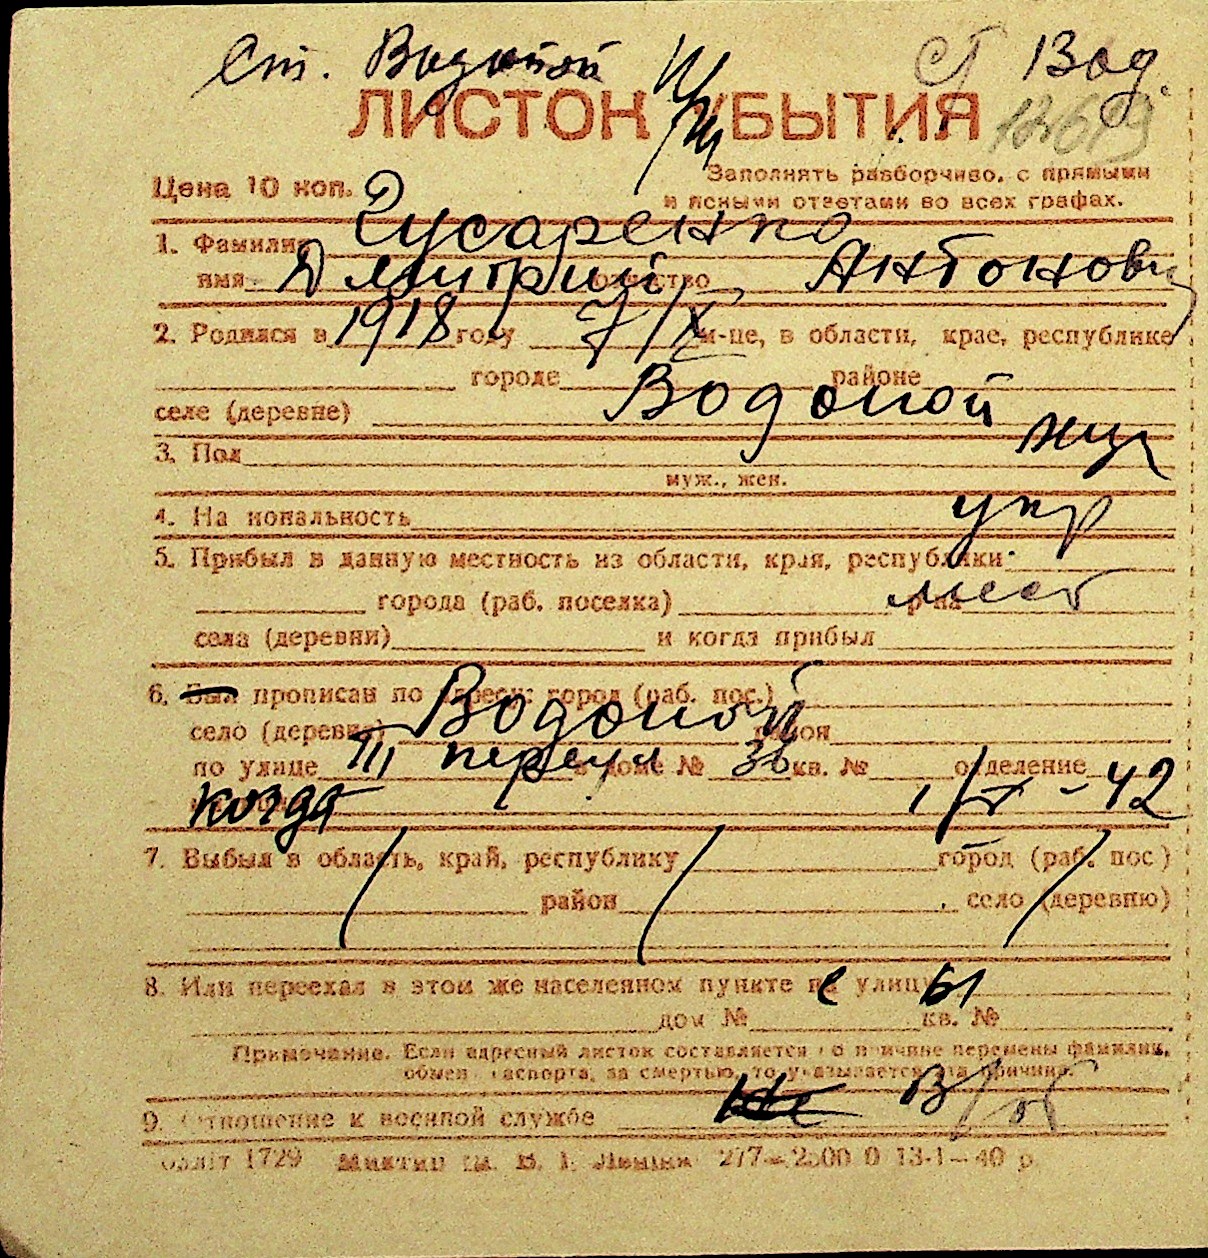 Ст. Водопой Ст Вод.
ЛИСТОК УБЫТИЯ
Цена 10 коп. Заполнять разборчиво, с прямыми
и ясными ответами во всех графах.
1. Фамилия Гусаренко
имя Дмитрий отчество Антонович
2. Родился в 1918 году 7/X м-це, в области, крае, республике
городе районе
селе (деревне) Водопой
3. Пол
муж., жен.
4. На иональность укр
5. Прибыл в данную местность из области, края, республики
города (раб. поселка) р-на мест
села (деревни) и когда прибыл
6. Был прописан по адресу: город (раб. пос.)
село (деревня) Водопой район
по улице III переул в доме № 36 кв. № отделение
когда -42
7. Выбыл в область, край, республику город (раб. пос)
район село (деревню)
8. Или переехал в этом же населенном пункте на улицу
дом № кв. №
Примечание. Если адресный листок составляется по причине перемены фамилии,
обмен паспорта, за смертью, то указывается эта причина.
9. Отношение к военной службе В/об
Облліт 1729 277—2500 0 13-1—40 р.